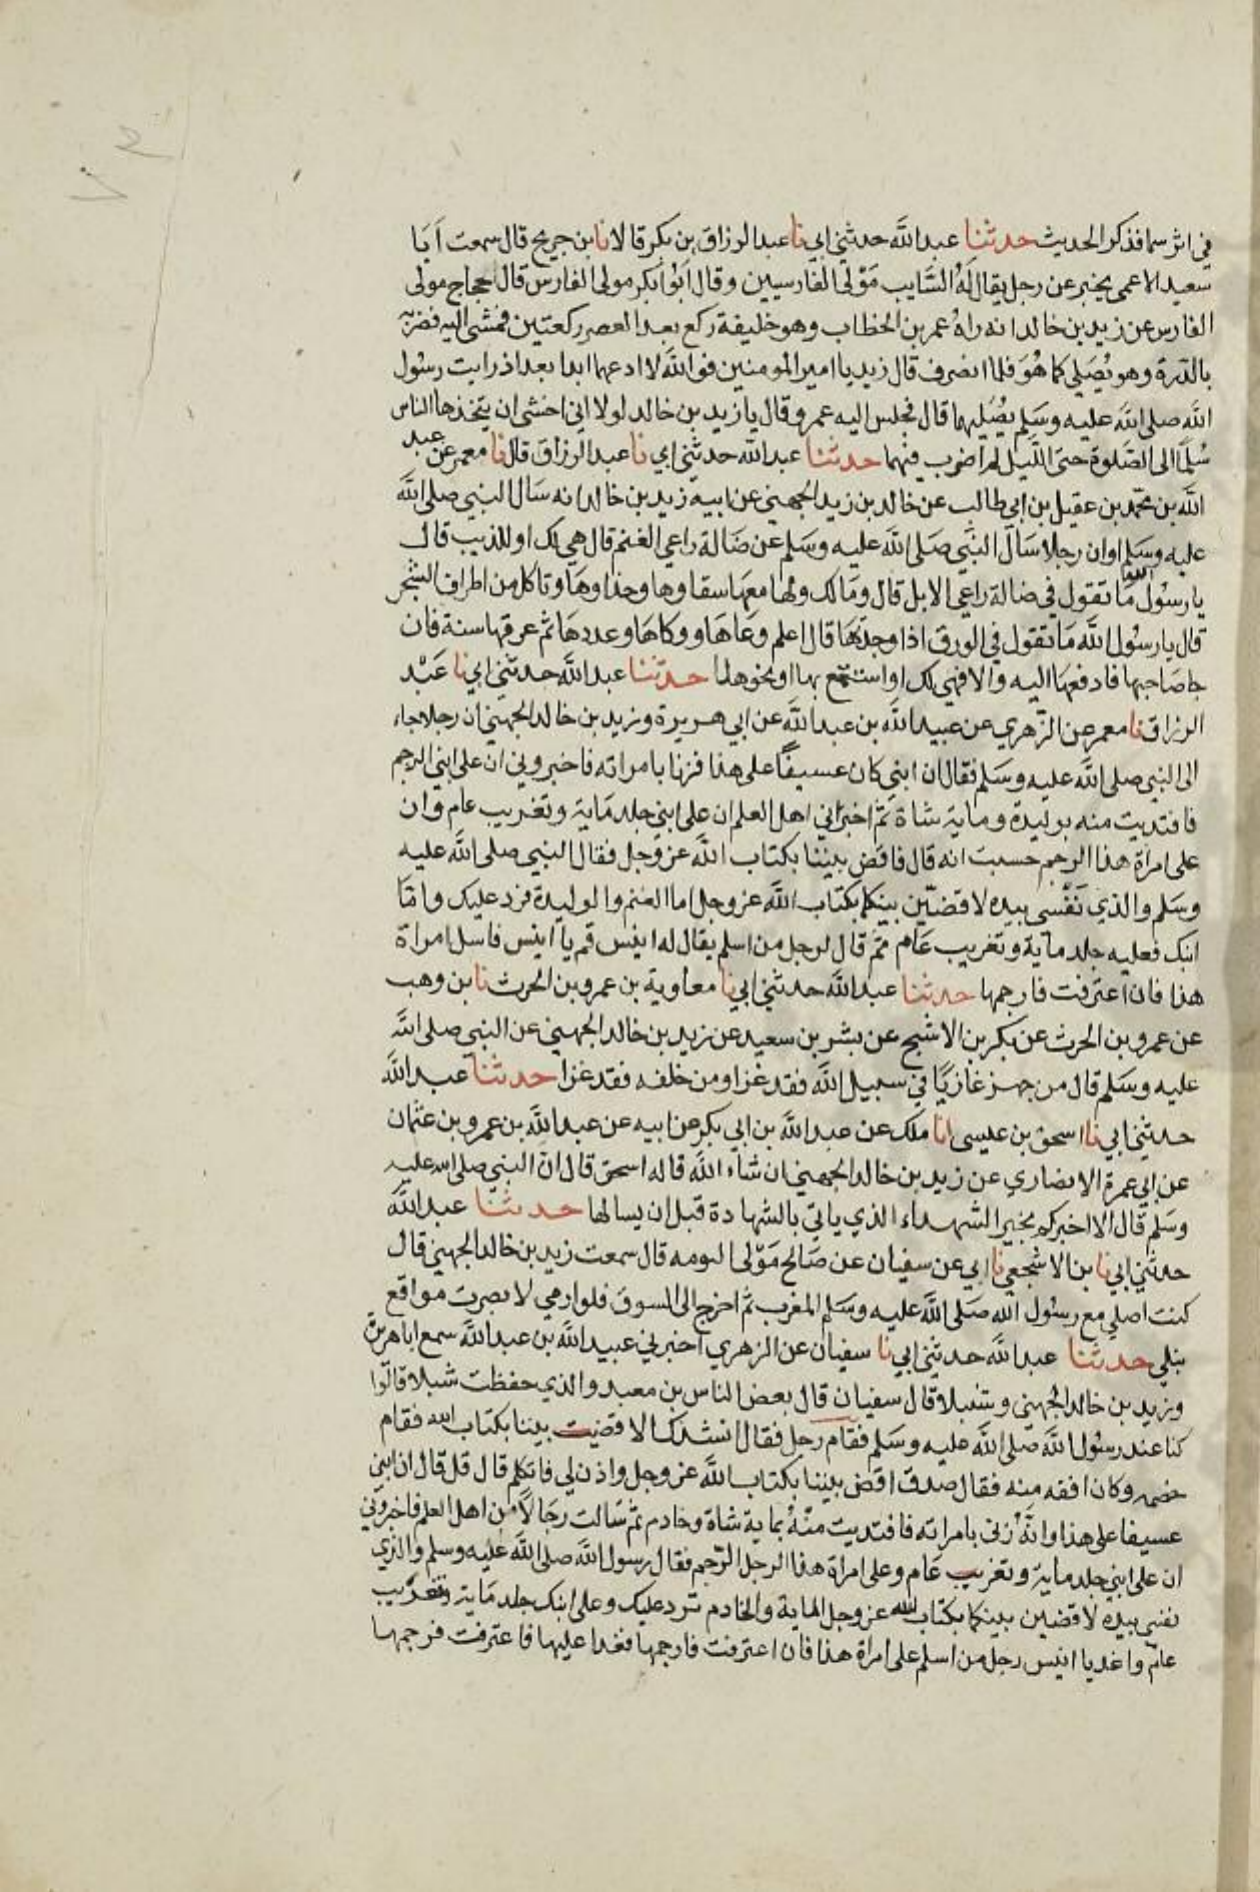 في اثر سما فذكر الحديث حدثنا عبد الله حدثني ابي نا عبد الرزاق بن بكر قالا نا بن جريج قال سمعت ابا
سعيد الاعمى يخبر عن رجل يقال له السايب مولى الفارسيين وقال ابو بكر مولى الفارس قال حجاج مولى
الفارس عن زيد بن خالد انه راه عمر بن الخطاب وهو خليفة ركع بعد العصر ركعتين فمشى اليه فضربه
بالدرة وهو يصلي كما هو فلما انصرف قال زيد يا امير المومنين فوالله لا ادعهما ابدا بعد اذ رايت رسول
الله صلى الله عليه وسلم يصليهما قال فجلس اليه عمر وقال يا زيد بن خالد لولا اني اخشى ان يتخذها الناس
سلما الى الصلوة حتى الليل لم اضرب فيهما حدثنا عبد الله حدثني ابي نا عبد الرزاق قال نا معمر عن عبد
الله بن محمد بن عقيل بن ابي طالب عن خالد بن زيد الجهني عن ابيه زيد بن خالد انه سال النبي صلى الله
عليه وسلم او ان رجلا سال النبي صلى الله عليه وسلم عن ضالة راعي الغنم قال هي لك او للذيب قال
يا رسول الله ما تقول في ضالة راعي الابل قال وما لك ولها معها سقاوها وحذاوها وتاكل من اطراف الشجر
قال يا رسول الله ما تقول في الورق اذا وجدتها قال اعلم وعاها ووكاها وعددها ثم عرفها سنة فان
جا صاحبها فادفعها اليه والا فهي لك او استمتع بها او نحو هذا حدثنا عبد الله حدثني ابي نا عبد
الرزاق نا معمر عن الزهري عن عبيد الله بن عبد الله عن ابي هريرة وزيد بن خالد الجهني ان رجلا جاء
الى النبي صلى الله عليه وسلم فقال ان ابني كان عسيفا على هذا فزنا بامراته فاخبروني ان على ابني الرجم
فافتديت منه بوليدة وماية شاة ثم اخبراني اهل العلم ان على ابني جلد ماية وتغريب عام وان
على امراة هذا الرجم حسبت انه قال فاقض بيننا بكتاب الله عز وجل فقال النبي صلى الله عليه
وسلم والذي نفسي بيده لاقضين بينكما بكتاب الله عز وجل اما الغنم والوليدة فرد عليك واما
ابنك فعليه جلد ماية وتغريب عام ثم قال لرجل من اسلم يقال له انيس قم يا انيس فاسل امراة
هذا فان اعترفت فارجمها حدثنا عبد الله حدثني ابي نا معاوية بن عمرو بن الحرث نا بن وهب
عن عمرو بن الحرث عن بكر بن الاشج عن بشر بن سعيد عن زيد بن خالد الجهني عن النبي صلى الله
عليه وسلم قال من جهز غازيا في سبيل الله فقد غزا ومن خلفه فقد غزا حدثنا عبد الله
حدثني ابي نا اسحق بن عيسى انا ملك عن عبد الله بن ابي بكر عن ابيه عن عبد الله بن عمرو بن عثمان
عن ابي عمرة الانصاري عن زيد بن خالد الجهني ان شاء الله قاله اسحق قال ان النبي صلى الله عليه
وسلم قال الا اخبركم بخير الشهداء الذي ياتي بالشهادة قبل ان يسالها حدثنا عبد الله
حدثني ابي نا بن الاشجعي نا ابي عن سفيان عن صالح مولى التومه قال سمعت زيد بن خالد الجهني قال
كنت اصلي مع رسول الله صلى الله عليه وسلم المغرب ثم اخرج الى السوق فلو ارمي لابصرت مواقع
نبلي حدثنا عبد الله حدثني ابي نا سفيان عن الزهري اخبرني عبيد الله بن عبد الله سمع ابا هريرة
وزيد بن خالد الجهني وشبلا قال سفيان قال بعض الناس بن معبد والذي حفظت شبلا قالوا
كنا عند رسول الله صلى الله عليه وسلم فقام رجل فقال انشدك الا قضيت بيننا بكتاب الله فقام
خصمه وكان افقه منه فقال صدق اقض بيننا بكتاب الله عز وجل واذن لي فاتكلم قال قل قال ان ابني
عسيفا على هذا وانه زنى بامراته فافتديت منه بماية شاة وخادم ثم سالت رجالا من اهل العلم فاخبروني
ان على ابني جلد ماية وتغريب عام وعلى امراة هذا الرجل الرجم فقال رسول الله صلى الله عليه وسلم والذي
نفسي بيده لاقضين بينكما بكتاب الله عز وجل الماية والخادم ترد عليك وعلى ابنك جلد ماية وتغريب
عام واغد يا انيس رجل من اسلم على امراة هذا فان اعترفت فارجمها فغدا عليها فاعترفت فرجمها